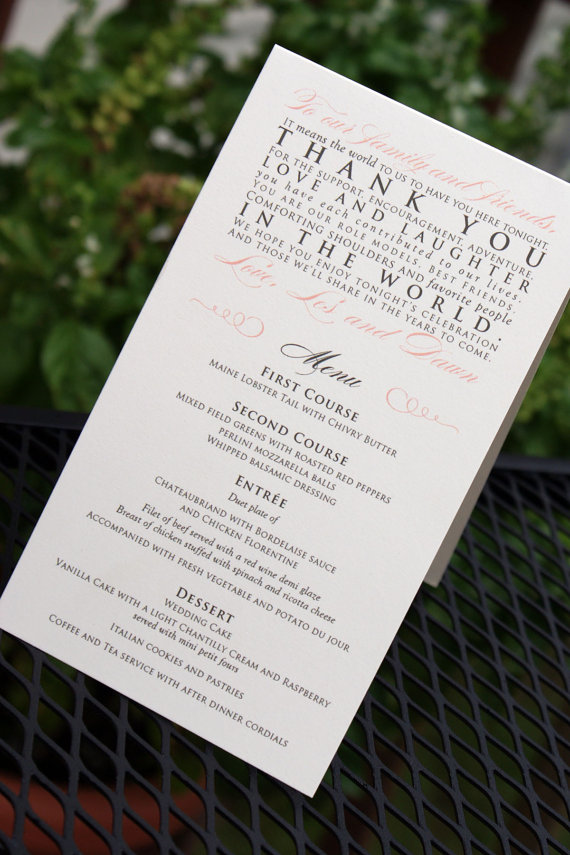 To our family and friends,
IT MEANS THE WORLD TO US TO HAVE YOU HERE TONIGHT.
THANK YOU
FOR THE SUPPORT, ENCOURAGEMENT, ADVENTURE,
LOVE AND LAUGHTER
you have each contributed to our lives.
YOU ARE OUR ROLE MODELS, BEST FRIENDS,
COMFORTING SHOULDERS AND favorite people
IN THE WORLD.
WE HOPE YOU ENJOY TONIGHT'S CELEBRATION
AND THOSE WE'LL SHARE IN THE YEARS TO COME.
Love, Les and Dawn
Menu
FIRST COURSE
MAINE LOBSTER TAIL WITH CHIVRY BUTTER
SECOND COURSE
MIXED FIELD GREENS WITH ROASTED RED PEPPERS
PERLINI MOZZARELLA BALLS
WHIPPED BALSAMIC DRESSING
ENTRÉE
Duet plate of
CHATEAUBRIAND WITH BORDELAISE SAUCE
AND CHICKEN FLORENTINE
Filet of beef served with a red wine demi glaze
Breast of chicken stuffed with spinach and ricotta cheese
ACCOMPANIED WITH FRESH VEGETABLE AND POTATO DU JOUR
DESSERT
WEDDING CAKE
VANILLA CAKE WITH A LIGHT CHANTILLY CREAM AND RASPBERRY
served with mini petit fours
ITALIAN COOKIES AND PASTRIES
COFFEE AND TEA SERVICE WITH AFTER DINNER CORDIALS